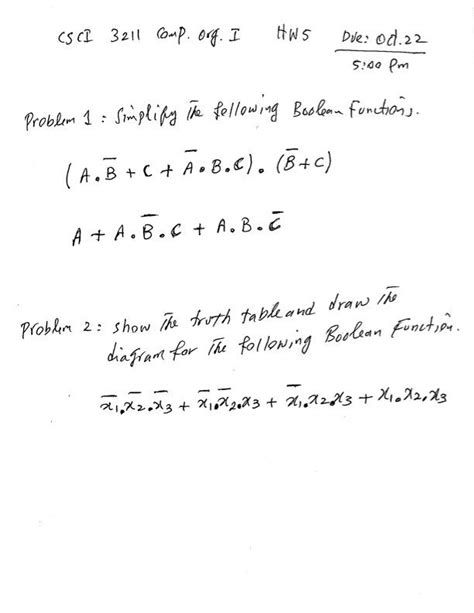 CSCI 3211 Comp. Org. I HW5 Due: Oct.22
5:00 pm
Problem 1: Simplify the following Boolean Functions.
(A.B̅ + C + A̅.B.C).(B̅+C)
A + A.B̅.C + A.B.C̅
Problem 2: show the truth table and draw the
diagram for the following Boolean Function.
x̅₁.x̅₂.x̅₃ + x̅₁.x̅₂.x₃ + x̅₁.x₂.x₃ + x₁.x₂.x₃